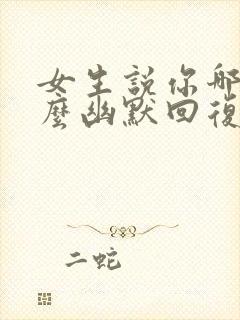 女生説你那
麼幽默回復
二蛇